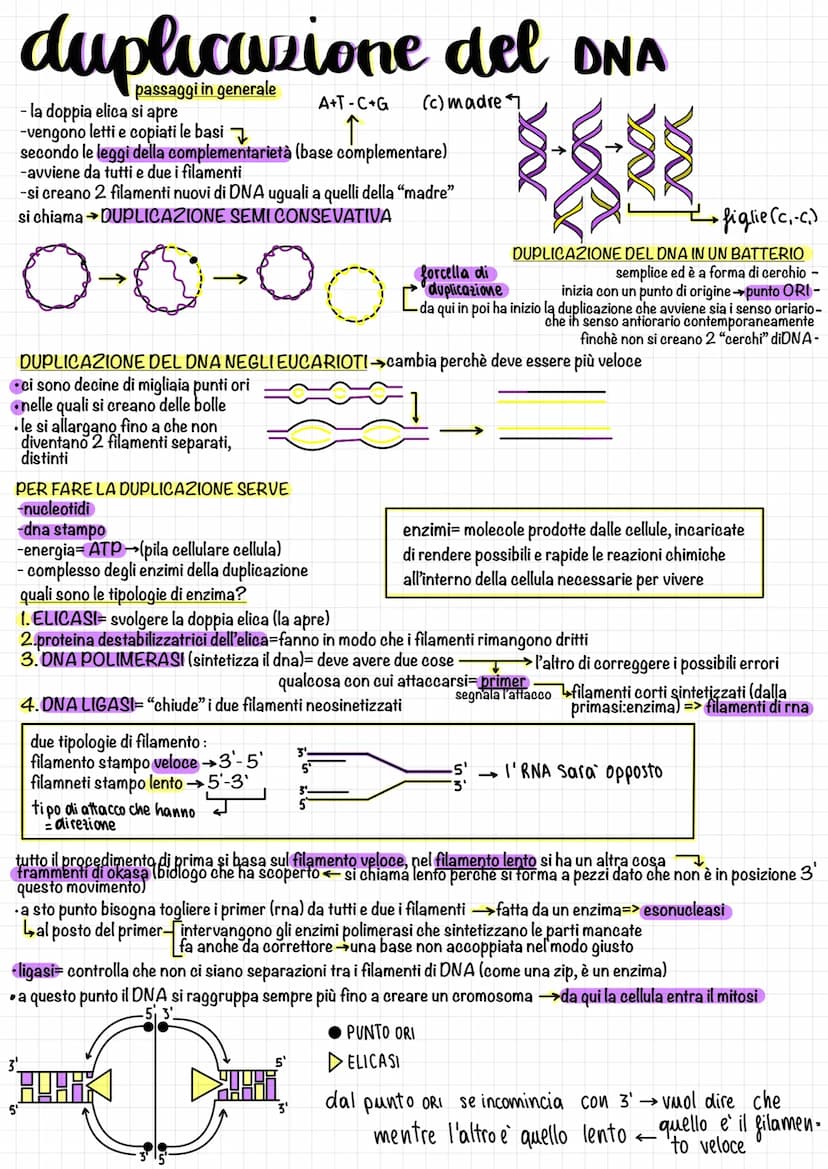 duplicazione del DNA
passaggi in generale
- la doppia elica si apre
-vengono letti e copiati le basi
A+T - C+G
(c) madre
secondo le leggi della complementarietà (base complementare)
-avviene da tutti e due i filamenti
-si creano 2 filamenti nuovi di DNA uguali a quelli della “madre”
si chiama → DUPLICAZIONE SEMI CONSEVATIVA
→ figlie (c,-c,)
DUPLICAZIONE DEL DNA IN UN BATTERIO
semplice ed è a forma di cerchio -
inizia con un punto di origine → punto ORI -
forcella di
duplicazione
da qui in poi ha inizio la duplicazione che avviene sia i senso oriario -
che ih senso antiorario contemporaneamente
finchè non si creano 2 “cerchi” diDNA -
DUPLICAZIONE DEL DNA NEGLI EUCARIOTI → cambia perchè deve essere più veloce
•ci sono decine di migliaia punti ori
•nelle quali si creano delle bolle
•le si allargano fino a che non
diventano 2 filamenti separati,
distinti
PER FARE LA DUPLICAZIONE SERVE
-nucleotidi
-dna stampo
-energia= ATP →(pila cellulare cellula)
- complesso degli enzimi della duplicazione
enzimi= molecole prodotte dalle cellule, incaricate
di rendere possibili e rapide le reazioni chimiche
all’interno della cellula necessarie per vivere
quali sono le tipologie di enzima?
1. ELICASI= svolgere la doppia elica (la apre)
2.proteina destabilizzatrici dell’elica=fanno in modo che i filamenti rimangono dritti
3. DNA POLIMERASI (sintetizza il dna)= deve avere due cose → l’altro di correggere i possibili errori
qualcosa con cui attaccarsi= primer
segnala l’attacco
filamenti corti sintetizzati (dalla
primasi:enzima) => filamenti di rna
4. DNA LIGASI= “chiude” i due filamenti neosinetizzati
due tipologie di filamento :
filamento stampo veloce → 3'- 5'
filamneti stampo lento → 5'-3'
tipo di attacco che hanno
= direzione
3'
5'
3'
5'
5'
3'
→ l'RNA sarà opposto
tutto il procedimento di prima si basa sul filamento veloce, nel filamento lento si ha un altra cosa
frammenti di okasa (biologo che ha scoperto ← si chiama lento perchè si forma a pezzi dato che non è in posizione 3'
questo movimento)
•a sto punto bisogna togliere i primer (rna) da tutti e due i filamenti → fatta da un enzima=> esonucleasi
al posto del primer
intervangono gli enzimi polimerasi che sintetizzano le parti mancate
fa anche da correttore → una base non accoppiata nel modo giusto
•ligasi= controlla che non ci siano separazioni tra i filamenti di DNA (come una zip, è un enzima)
•a questo punto il DNA si raggruppa sempre più fino a creare un cromosoma → da qui la cellula entra il mitosi
5' 3'
3'
5'
5'
3'
3' 5'
PUNTO ORI
ELICASI
dal punto ORI se incomincia con 3' → vuol dire che
quello e' il filamen-
to veloce
mentre l'altro è quello lento ←